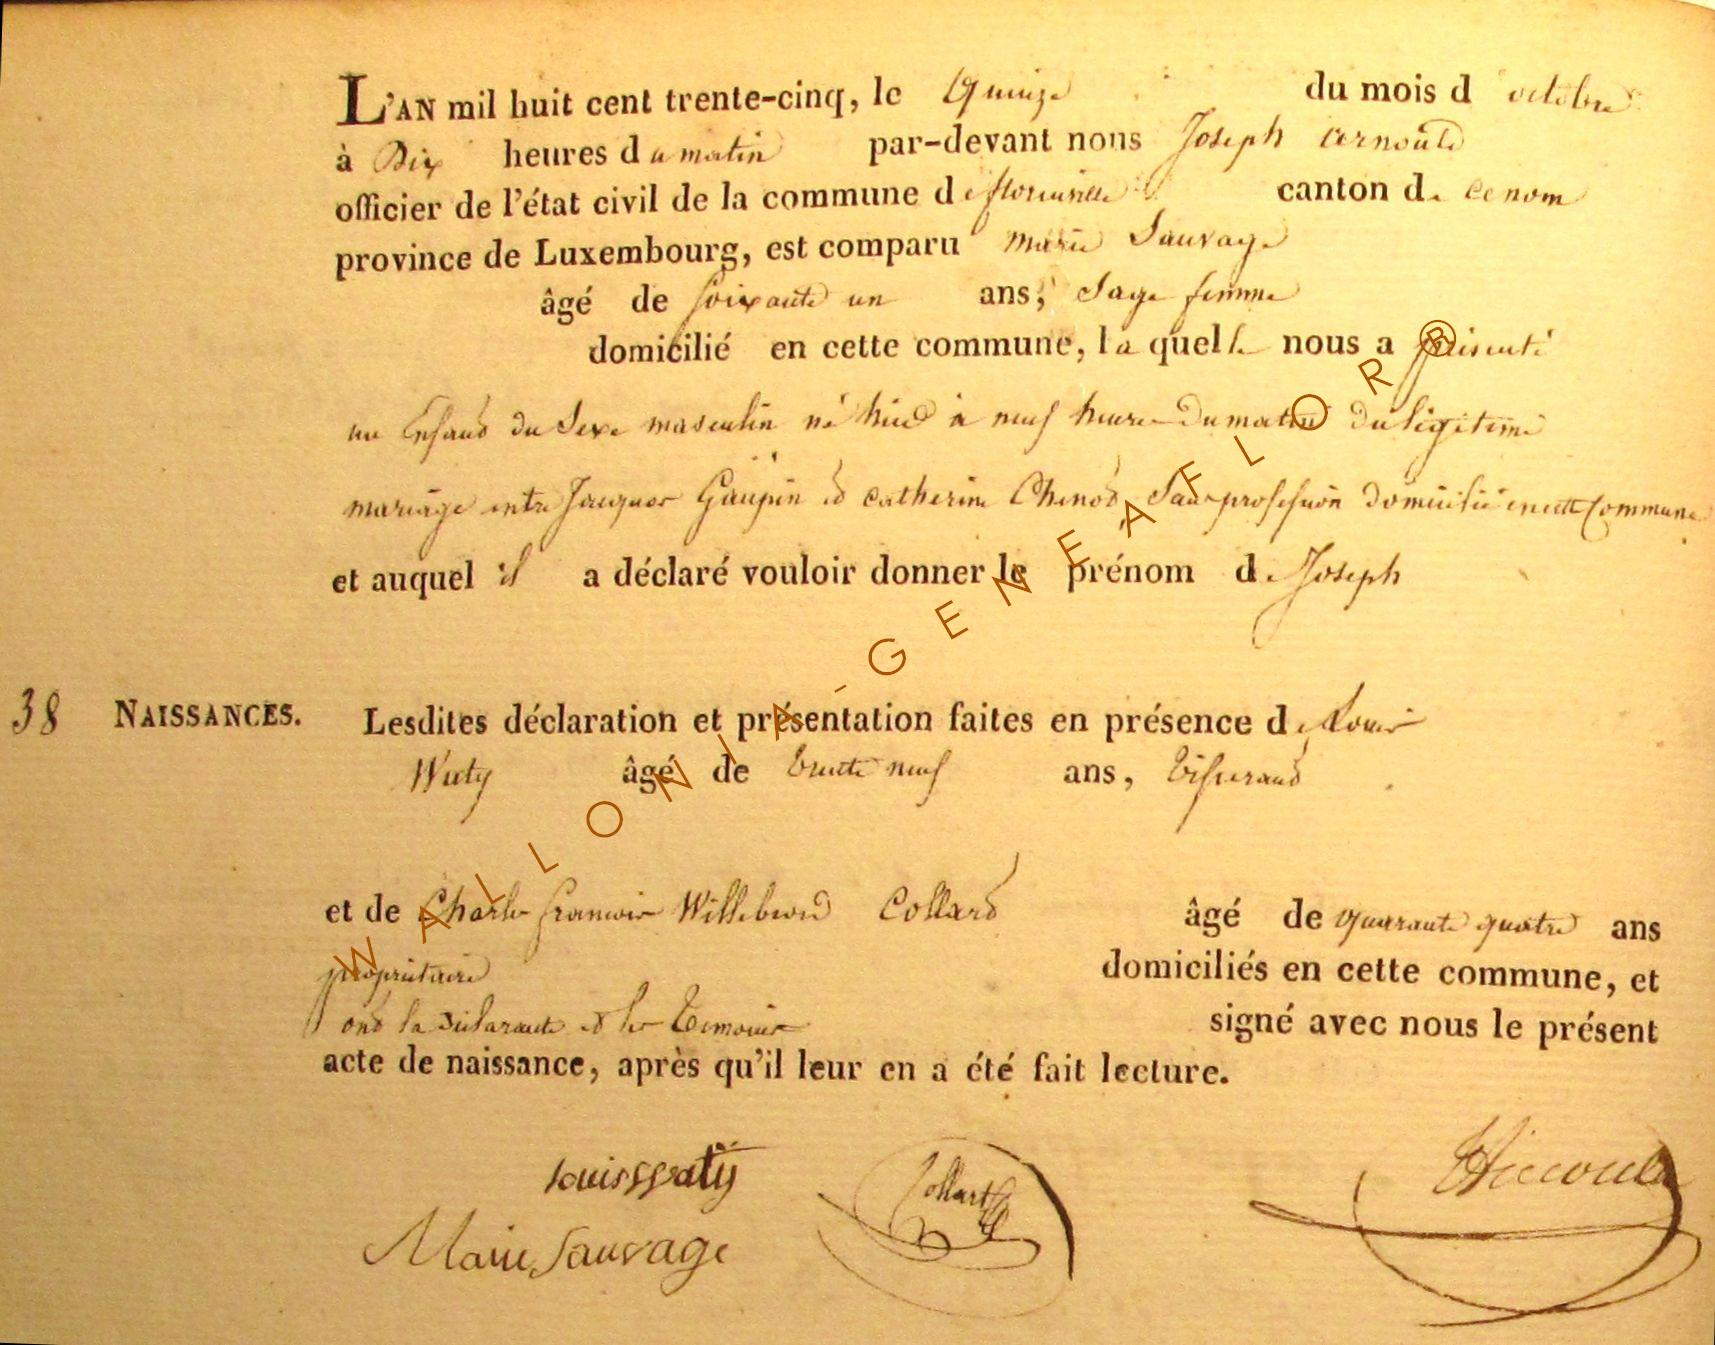 L'AN mil huit cent trente-cinq, le quinze du mois d'octobre
à Dix heures du matin par-devant nous Joseph
officier de l'état civil de la commune de florenville canton de ce nom
province de Luxembourg, est comparu marie Sauvage
âgé de soixante un ans, Sage femme
domicilié en cette commune, laquelle nous a présenté
un Enfant du Sexe masculin né hier à neuf heures du matin du légitime
mariage entre Jacques Gaupin et catherine Chenot, Sans profession domicilié en cette Commune
et auquel il a déclaré vouloir donner le prénom de Joseph
38 NAISSANCES. Lesdites déclaration et présentation faites en présence de Louis
Watÿ âgé de trente neuf ans, tisserand
et de Charles françois Willebrord Collard âgé de quarante quatre ans
propriétaire domiciliés en cette commune, et
ont la déclarante et les témoins signé avec nous le présent
acte de naissance, après qu'il leur en a été fait lecture.
Louis Watÿ
Collart
Marie Sauvage
WALLONIA-GENEAFLOR®